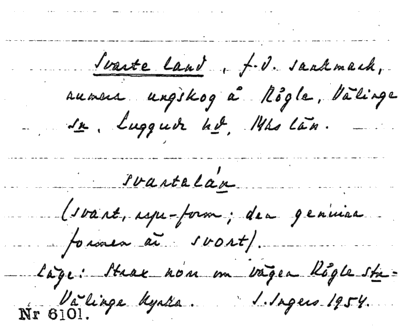 Svarte land, f.d. sankmark,
numera ungskog å Rögle, Välinge
sn, Luggude hd, Mhs län.
svartalán
(svart, rspr-form; den genuina
formen är svort).
Läge: Strax norr om vägen Rögle stn-
Välinge kyrka. I. Ingers 1954.
Nr 6101.